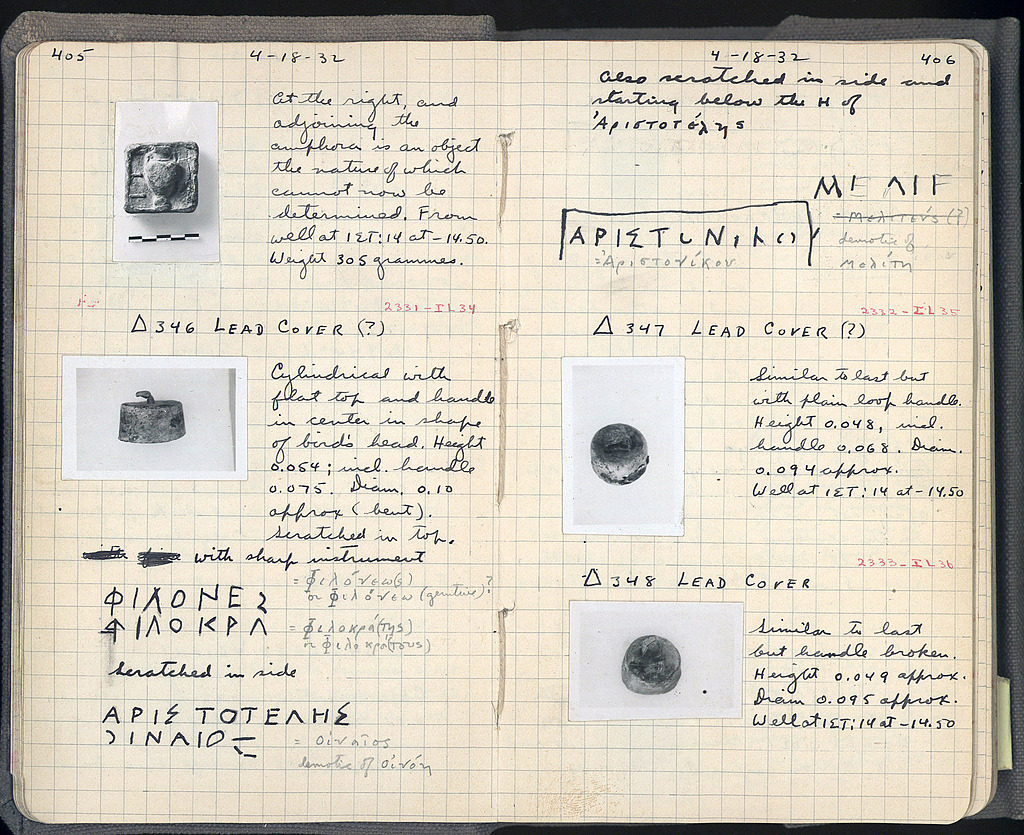 405
4-18-32
At the right, and
adjoining the
amphora is an object
the nature of which
cannot now be
determined. From
well at 1ΣΤ:14 at -14.50.
Weight 305 grammes.
2331-IL34
Δ 346 LEAD COVER (?)
Cylindrical with
flat top and handle
in center in shape
of bird's head. Height
0.054; incl. handle
0.075. Diam. 0.10
approx (bent).
Scratched in top.
with sharp instrument
ΦΙΛΟΝΕΣ
= Φιλόνεω(ς)
or Φιλόνεω (genitive)?
ΦΙΛΟΚΡΑ
= Φιλοκρά(της)
or Φιλοκρά(τους)
Scratched in side
ΑΡΙΣΤΟΤΕΛΗΣ
ΟΙΝΑΙΟΣ
= Οἰναῖος
demotic of Οἰνόη
4-18-32
406
also scratched in side and
starting below the H of
Ἀριστοτέλης
ΜΕΛΙΕ
= Μελιτεύς (?)
demotic of
Μελίτη
ΑΡΙΣΤΟΝΙΚΟ
= Ἀριστονίκου
2332-IL35
Δ 347 LEAD COVER (?)
Similar to last but
with plain loop handle.
Height 0.048, incl.
handle 0.068. Diam.
0.094 approx.
Well at 1ΣΤ:14 at -14.50
2333-IL36
Δ 348 LEAD COVER
Similar to last
but handle broken.
Height 0.049 approx.
Diam 0.095 approx.
Well at 1ΣΤ:14 at -14.50